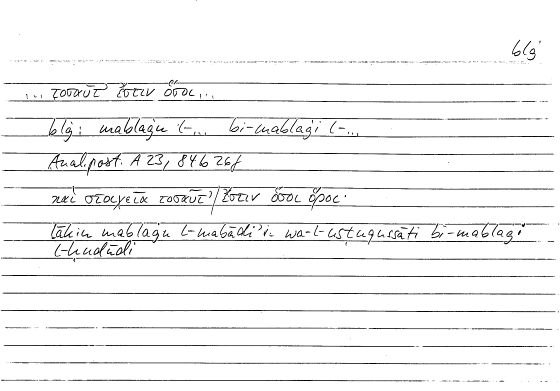 blġ
... τοσαῦτ' ἔστιν ὅσοι...
blġ: mablaġu l-... bi-mablaġi l-...
Anal.post. A 23, 84b26f
καὶ στοιχεῖα τοσαῦτ'/ἔστιν ὅσοι ὅροι·
lākin mablaġu l-mabādi'i wa-l-usṭuqussāti bi-mablaġi
l-ḥudūdi